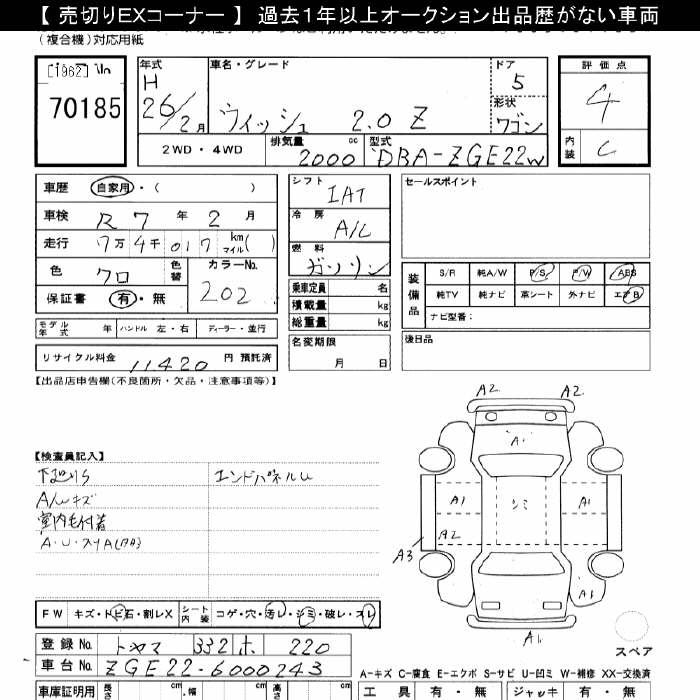 【売切りEXコーナー】過去1年以上オークション出品歴がない車両
(複合機)対応用紙
70185
年式 車名・グレード ドア 評価点
H 26/2月 ウィッシュ 2.0 Z 5 4
形状 ワゴン
2WD・4WD 排気量 2000 cc 型式 DBA-ZGE22W 内装 C
車歴 自家用・( )
車検 R 7年 2月
走行 7万4千017 km マイル( )
色 クロ 色替 カラーNo. 202
保証書 有・無
モデル年式 年 ハンドル 左・右 ディーラー・並行
リサイクル料金 11420 円 預託済
シフト IAT
冷房 A/C
燃料 ガソリン
乗車定員 名
積載量 kg
総重量 kg
名変期限 月 日
セールスポイント
装備品 S/R 純A/W P/S P/W ABS
純TV 純ナビ 革シート 外ナビ エアB
ナビ型番:
後日品
【出品店申告欄(不良箇所・欠品・注意事項等)】
【検査員記入】
下廻りS エンドパネルU
A/Wキズ
室内毛付着
A・U・スリA(内外)
A2 A2
A1
A1 シミ A1
A2
A3
A1 A1
A1
スペア
FW キズ・トビ石・割レX シート内装 コゲ・穴・汚レ・シミ・破レ・スレ
登録No. トヤマ 332 ホ 220
車台No. ZGE22-6000243
A-キズ C-腐食 E-エクボ S-サビ U-凹ミ W-補修 XX-交換済
車庫証明用 長さ cm 幅 cm 高さ cm 工具 有・無 ジャッキ 有・無